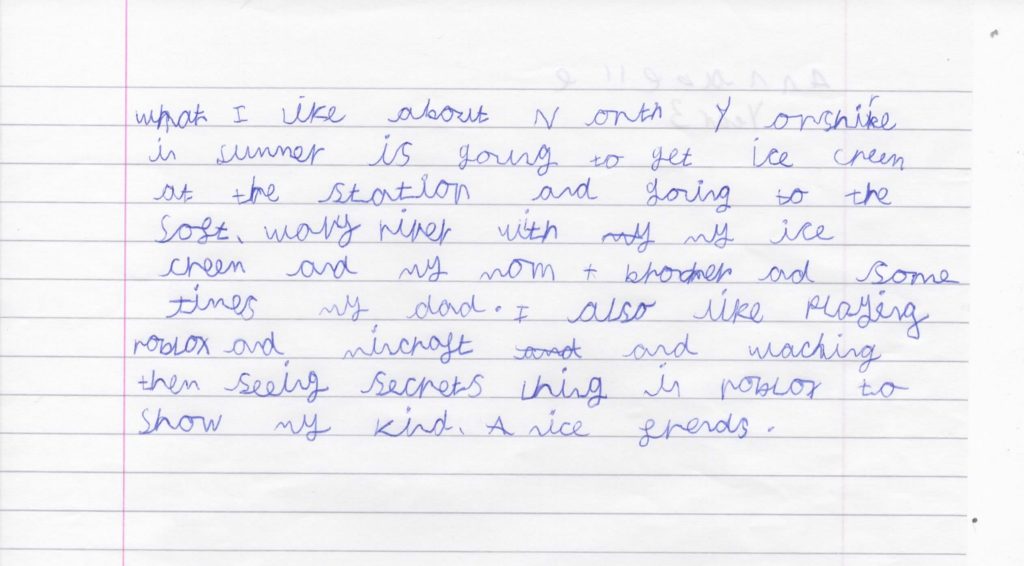 what I like about North Yorshire
in summer is going to get ice creem
at the station and going to the
soft, wavy river with my my ice
creem and my mom + brother ad some
times my dad. I also like playing
roblox and mincraft and and waching
then seeing secrets thing in roblox to
show my kind, A nice frends.